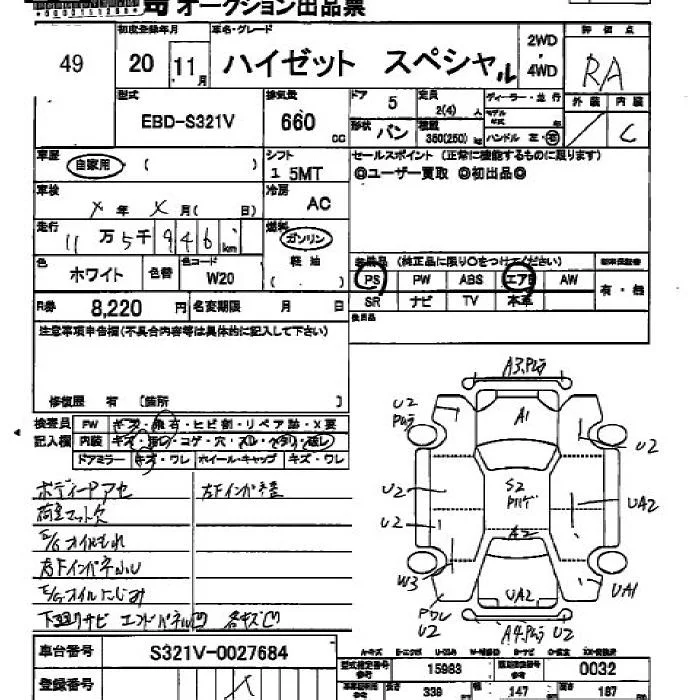 オークション出品票
49
初度登録年月
20 11月
車名・グレード
ハイゼット スペシャル
2WD
4WD
評価点
RA
外装 内装
C
型式
EBD-S321V
排気量
660 cc
ドア 5
定員
2(4) 人
形状 バン
積載
350(250) kg
ディーラー・並行
モデル
年式
ハンドル 左・右
車歴
自家用 (
シフト
5MT
セールスポイント (正常に機能するものに限ります)
◎ユーザー買取 ◎初出品◎
車検
X 年 X 月( 日)
冷房
AC
走行
11万5千946km
燃料
ガソリン
軽油
( )
色
ホワイト
色替
色コード
W20
装備品 (純正品に限り○をつけてください)
PS PW ABS エアB AW
SR ナビ TV 本革
有・無
後日品
R券
8,220 円
名変期限 月 日
注意事項申告欄(不具合内容等は具体的に記入して下さい)
修復歴 有 [箇所 ]
検査員
記入欄
FW キズ・飛石・ヒビ割・リペア跡・X要
内装 キズ・汚れ・コゲ・穴・スレ・ベタリ・破レ
ドアミラー キズ・ワレ ホイール・キャップ キズ・ワレ
ボディーPアセ
荷室マット欠
E/Gオイルもれ
E/Gオイルにじみ
下廻りサビ
A3
A1
U2
U2
U2
U2
S2
UA2
A2
W3
UA2
UA1
U2
A4
U2
車台番号
S321V-0027684
登録番号
型式指定番号
15983
類別区分番号
0032
長さ
339
幅
147
高さ
187